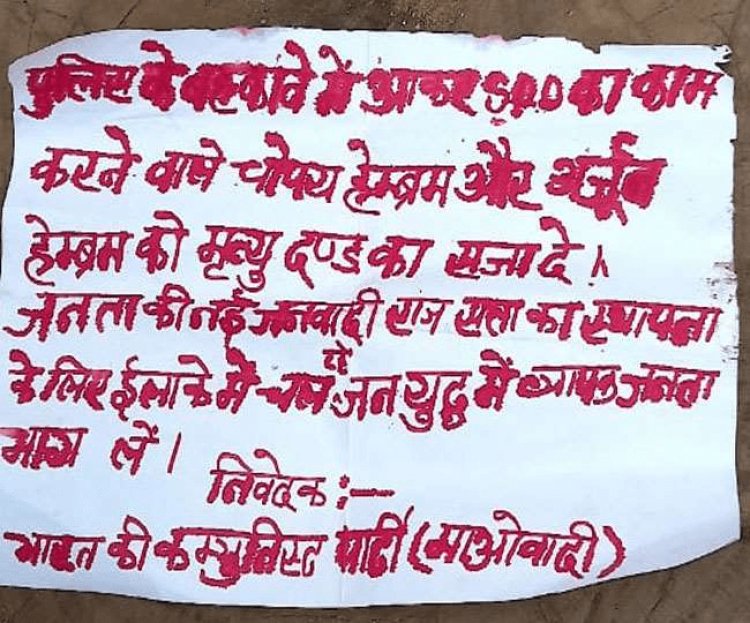 पुलिस के बहकावे में आकर S.P.O का काम
करने वाले चोपय हेम्ब्रम और अर्जुन
हेम्ब्रम को मृत्यु दण्ड का सजा दे ।
जनता की नई जनवादी राज सत्ता का स्थापना
के लिए ईलाके में चल रहे जन युद्ध में व्यापक जनता
भाग लें ।
निवेदक :—
भारत की कम्युनिस्ट पार्टी (माओवादी)